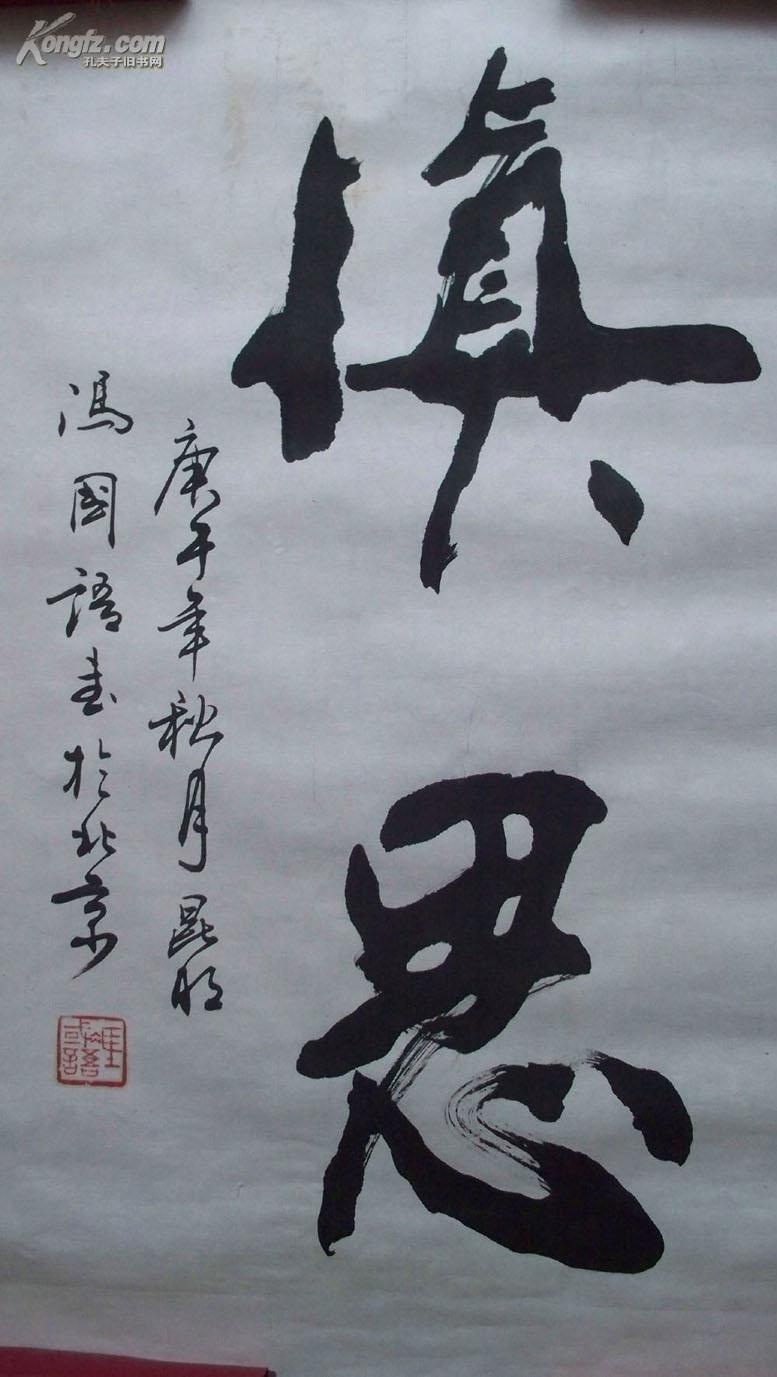 Kongfz.com
孔夫子旧书网
慎思
庚午年秋月昆明
馮國語书於北京